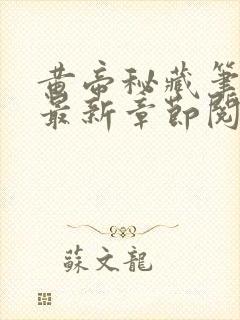 黄帝秘藏筆
最新章節閱
蘇文龍